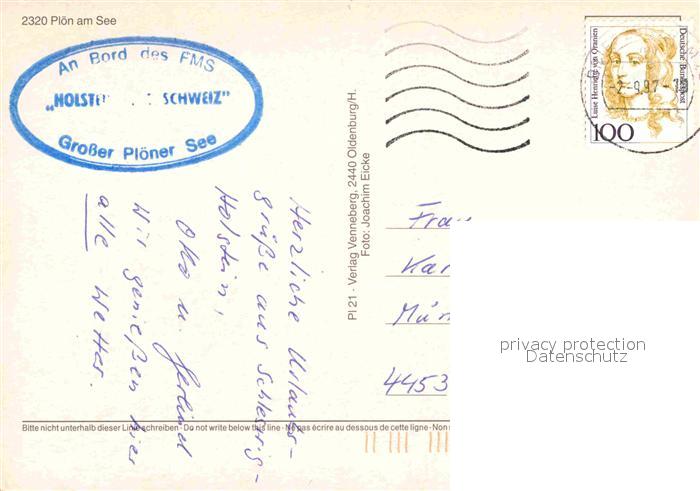 2320 Plön am See
An Bord des FMS
„HOLST SCHWEIZ"
Großer Plöner See
Herzliche Urlaubs-
grüße aus Schleswig-
Holstein,
Otto u. Gerlind
Wir genießen hier
alle Wetter.
Pl 21 - Verlag Venneberg, 2440 Oldenburg/H.
Foto: Joachim Eicke
Luise Henriette von Oranien
Deutsche Bundespost
100
-2-9.97-
Frau
Kar
Mün
4453
privacy protection
Datenschutz
Bitte nicht unterhalb dieser Linie schreiben - Do not write below this line - Ne pas écrire au dessous de cette ligne - Non